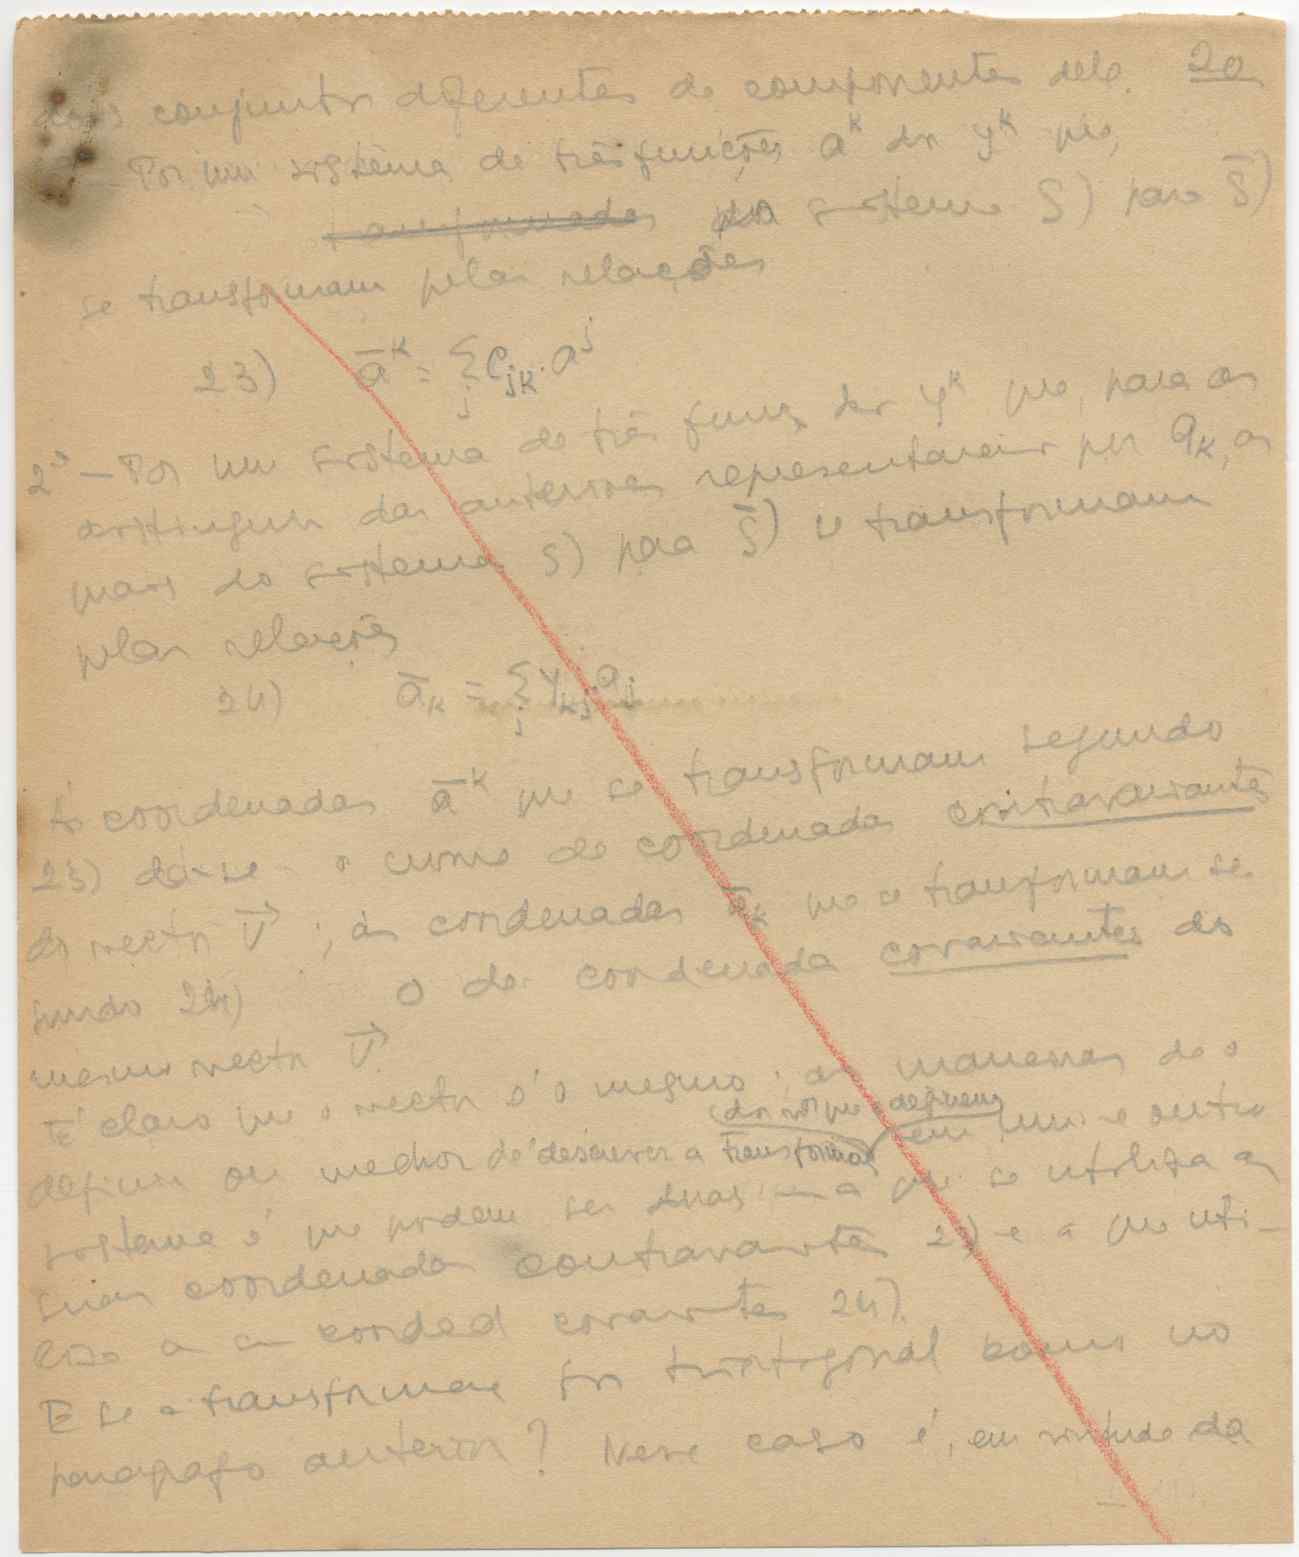 dois conjuntos diferentes de componentes delo. 20
Por um sistema de três funções a^k dos y^k que,
transformadas do sistema S) para S̄)
se transformam pelas relações
23) ā^k = Σ_j C_jk · a^j
2º — Por um sistema de três funç. dos y^k que, para as
distinguir das anteriores representaremos por a_k, as
quais do sistema S) para S̄) se transformam
pelas relações
24) ā_k = Σ_j γ_kj a_j
Às coordenadas ā^k que se transformam segundo
23) dá-se o nome de coordenadas contravariantes
do vector V⃗ ; às coordenadas ā_k que se transformam se-
gundo 24) o de coordenadas covariantes do
mesmo vector V⃗.
É claro que o vector é o mesmo; as maneiras de o
(dos nos que o definem
definir ou melhor de descrever a transformação em um e outro
sistema é que podem ser duas — a que se utiliza as
suas coordenadas contravariantes 23) e a que uti-
liza as coorded covariantes 24).
E se a transformação for triortogonal como no
parágrafo anterior? Nesse caso é, em virtude da